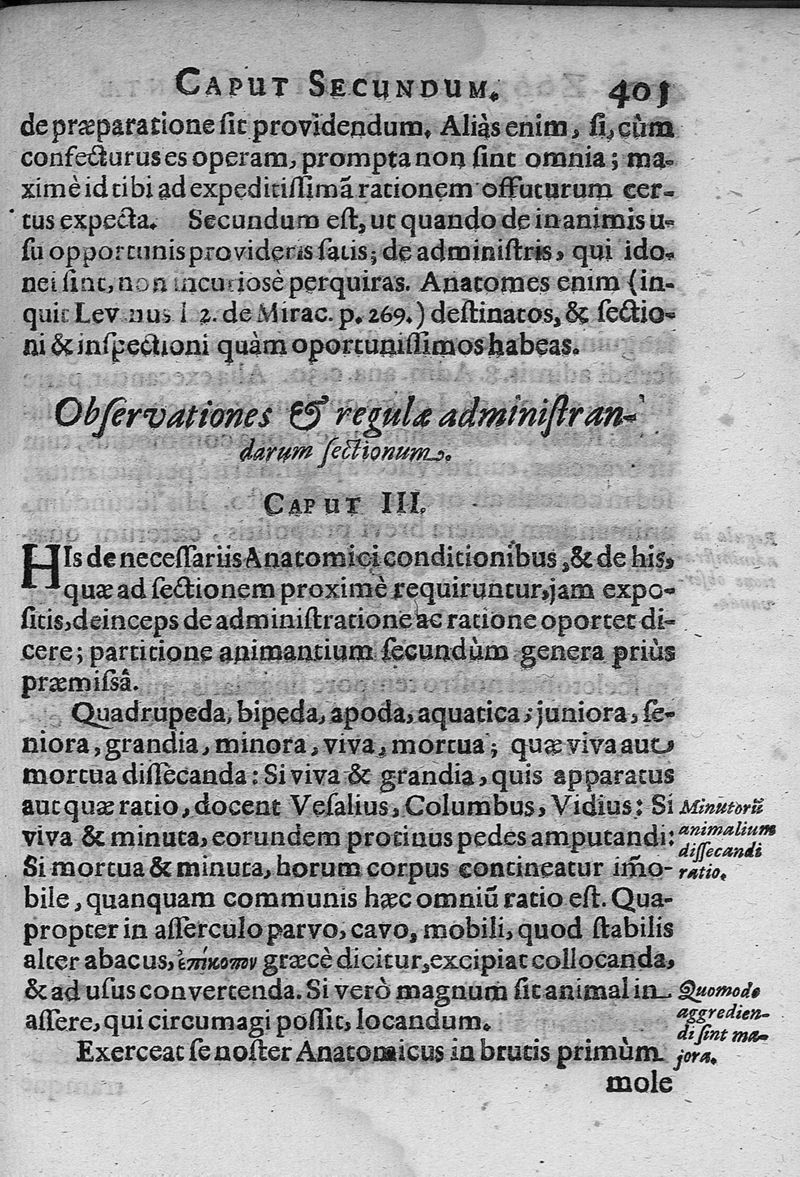 CAPUT SECUNDUM. 401
de præparatione sit providendum. Aliàs enim, si, cùm
confecturus es operam, prompta non sint omnia; ma-
ximè id tibi ad expeditissimã rationem offuturum cer-
tus expecta. Secundum est, ut quando de inanimis u-
su opportunis provideris satis; de administris, qui ido-
nei sint, non incuriosè perquiras. Anatomes enim (in-
quit Levinus l 2. de Mirac. p. 269.) destinatos, & sectio-
ni & inspectioni quàm oportunissimos habeas.
Observationes & regulæ administran-
darum sectionum.
CAPUT III.
HIs de necessariis Anatomici conditionibus, & de his,
quæ ad sectionem proximè requiruntur, jam expo-
sitis, deinceps de administratione ac ratione oportet di-
cere; partitione animantium secundùm genera priùs
præmissâ.
Quadrupeda, bipeda, apoda, aquatica; juniora, se-
niora, grandia, minora, viva, mortua; quæ viva aut
mortua dissecanda: Si viva & grandia, quis apparatus
aut quæ ratio, docent Vesalius, Columbus, Vidius: Si
viva & minuta, eorundem protinus pedes amputandi:
Si mortua & minuta, horum corpus contineatur im̃o-
bile, quanquam communis hæc omniũ ratio est. Qua-
propter in asserculo parvo, cavo, mobili, quod stabilis
alter abacus, ἐπίκοπον græcè dicitur, excipiat collocanda,
& ad usus convertenda. Si verò magnum sit animal in
assere, qui circumagi possit, locandum.
Exerceat se noster Anatomicus in brutis primùm
mole
Minutorũ
animalium
dissecandi
ratio.
Quomodo
aggredien-
di sint ma-
jora.